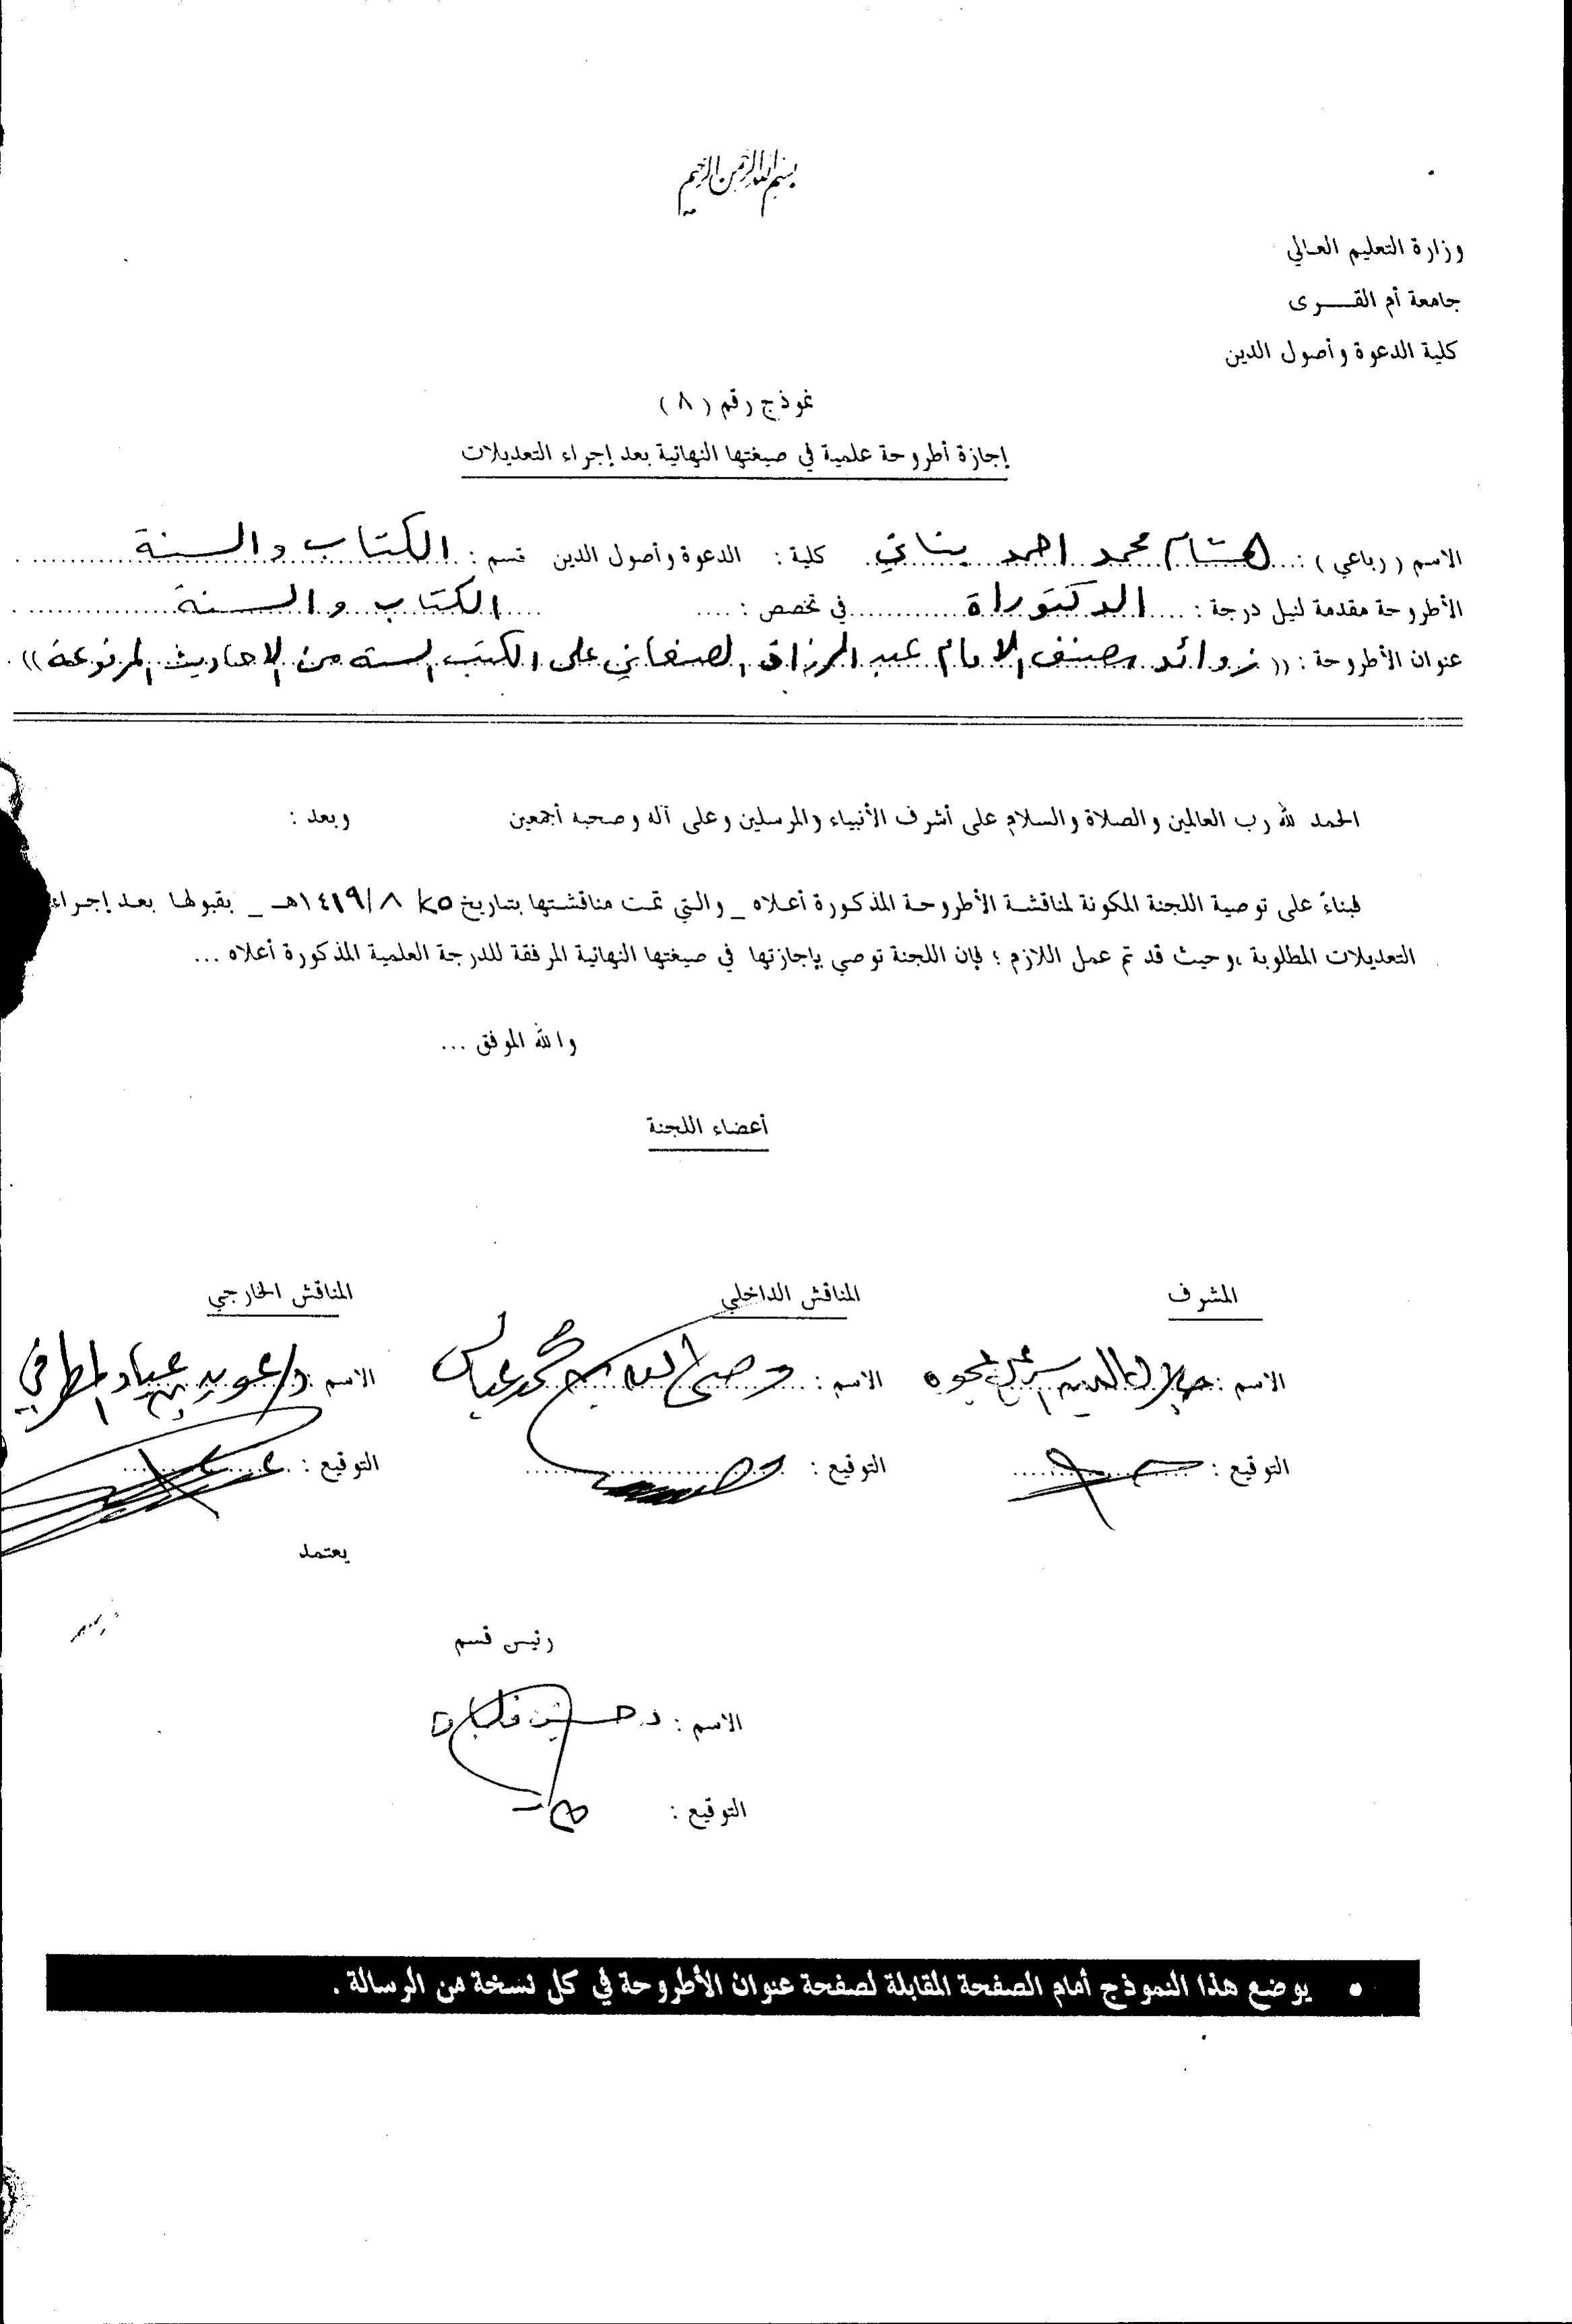 بسم الله الرحمن الرحيم
وزارة التعليم العالي
جامعة أم القـــــرى
كلية الدعوة وأصول الدين
نموذج رقم ( ٨ )
إجازة أطروحة علمية في صيغتها النهائية بعد إجراء التعديلات
الاسم ( رباعي ) : هشام محمد احمد بناني كلية : الدعوة وأصول الدين قسم : الكتاب والسنة
الأطروحة مقدمة لنيل درجة : الدكتوراة في تخصص : الكتاب والسنة
عنوان الأطروحة : (( زوائد مصنف الامام عبد الرزاق الصنعاني على الكتب الستة من الاحاديث المرفوعة ))
الحمد لله رب العالمين والصلاة والسلام على أشرف الأنبياء والمرسلين وعلى آله وصحبه أجمعين وبعد :
فبناءً على توصية اللجنة المكونة لمناقشة الأطروحة المذكورة أعلاه _ والتي تمت مناقشتها بتاريخ ٢٥ / ٨ /١٤١٩هـ _ بقبولها بعد إجراء
التعديلات المطلوبة ،وحيث قد تم عمل اللازم ؛ فإن اللجنة توصي بإجازتها في صيغتها النهائية المرفقة للدرجة العلمية المذكورة أعلاه ...
والله الموفق ...
أعضاء اللجنة
المشرف المناقش الداخلي المناقش الخارجي
الاسم : جلال الدين عجوه الاسم : وصي الله بن محمد عباس الاسم : د/عويد بن عياد المطرفي
التوقيع : التوقيع : التوقيع :
يعتمد
رئيس قسم
الاسم : د. حسين فلمبان
التوقيع :
• يوضع هذا النموذج أمام الصفحة المقابلة لصفحة عنوان الأطروحة في كل نسخة من الرسالة .